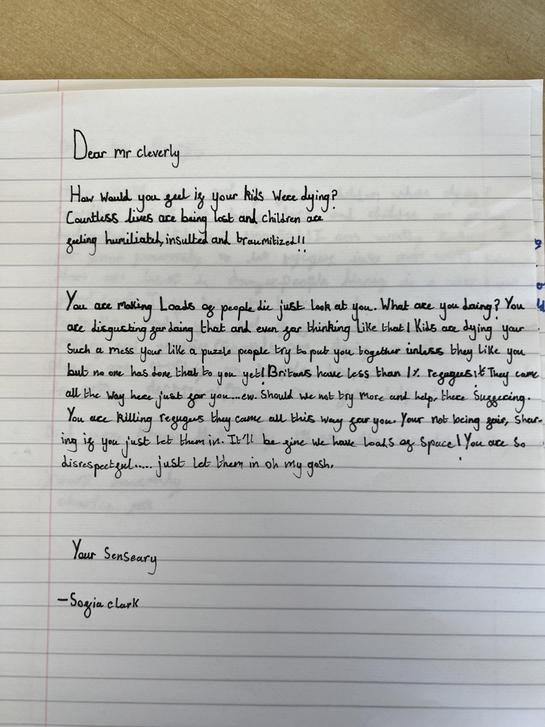 Dear mr cleverly
How would you feel if your kids were dying?
Countless lives are being lost and children are
feeling humiliated, insulted and traumitized!!
You are making Loads of people die just look at you. What are you doing? You
are disgusting for doing that and even for thinking like that! Kids are dying your
Such a mess your like a puzzle people try to put you together unless they like you
but no one has done that to you yet! Britans have less than 1% refugees! They came
all the way here just for you...ew. Should we not try more and help, there suffering.
You are killing refugees they came all this way for you. Your not being fair, Shar-
ing if you just let them in. It'll be fine we have loads of Space! You are so
disrespectful..... just let them in oh my gosh.
Your Senseary
-Sofia clark